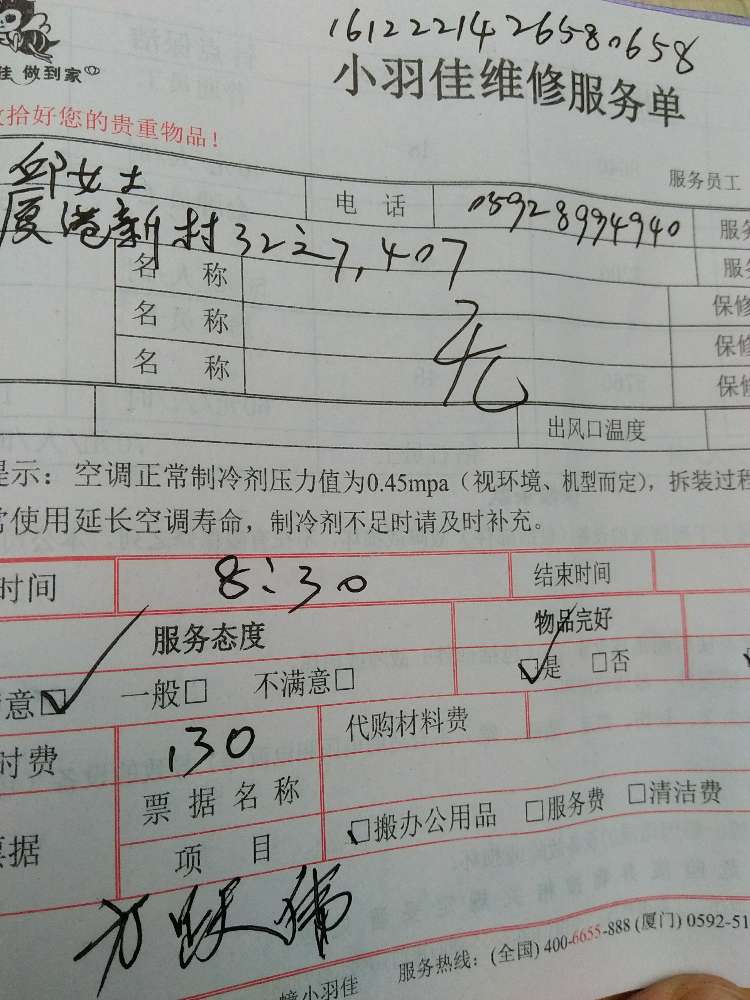 1612221426580658
佳 做到家
小羽佳维修服务单
拾好您的贵重物品！
服务员工
邱女士 电 话 05928994940 服务
厦港新村32之7,407 服
名 称 保修
名 称 保修
名 称 保修
出风口温度
提示：空调正常制冷剂压力值为0.45mpa（视环境、机型而定），拆装过程
常使用延长空调寿命，制冷剂不足时请及时补充。
时间 8:30 结束时间
服务态度 物品完好
意☑ 一般□ 不满意□ ☑是 □否
付费 130 代购材料费
票据 票 据 名 称
项 目 □搬办公用品 □服务费 □清洁费
小羽佳 服务热线：(全国) 400-6655-888 (厦门) 0592-51